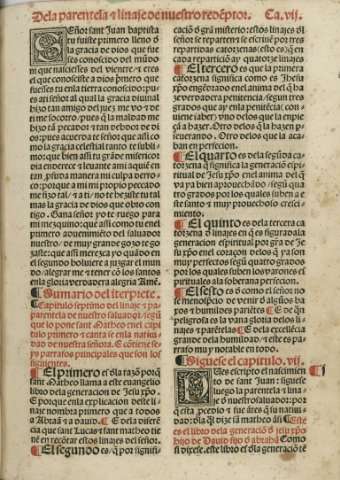 De la parentela ⁊ linaje de nuestro redẽptor. Ca. vij.
SEñor sant Juan baptista
tu fuiste primero lleno ð
la gracia de dios que fue
sses conoscido del mũdo
ni que naciesses del vientre ⁊ eres
el que conosciste a dios p̃mero que
fuesses tu enla tierra conoscido: pu-
es assi señor al qual la gracia diuinal
hizo tan amigo del juez
mi señor: pues que la maldad me
hizo tã pecador ⁊ tan debdor de di
os: pues acuerda te señor que assi co
mo la gracia celestial tanto te subli-
mo: que bien assi tu grãde misericor
dia enderece ⁊ leuante ami aquiẽ en
tan, pfunda manera mi culpa derro-
co: porque a mi mi propio peccado
mas la gracia de dios que obro con
tigo. Gana señor yo te ruego para
mi mezquino: que assi como tu enel
primero aduenimiẽto del saluador
nuestro/ de muy grande gozo te go
zaste: que assi merezca yo quãdo en
el segundo boluiere a juzgar el mun
do/ alegrar me ⁊ tener cõ los santos
enla gloria verdadera alegria Amẽ.
¶ Sumario del interpiete.
¶ Capitulo septimo del linaje ⁊ pa-
parentela de nuestro saluador: segũ
que lo pone sant Matheo enel capi
tulo primero ⁊ canta se enla natiui-
dad de nuestra señora. E cõtiene se-
ys parrafos principales que son los
siguientes.
¶ El primero es ð la razõ porq̃
sant Matheo llama a este euangelio
libro dela generacion de Jesu xp̃o.
E porque enla explicacion deste li-
naje nombra primero que a todos
a Abraã ⁊ a dauid. ¶ E dela diferẽ
cia que sant Lucas ⁊ sant matheo tie
nẽ en recõtar estos linajes del señor.
¶ El segundo es/ q̃ por signifi-
cació ð grã misterio: estos linajes ðl
señor se repartẽ ⁊ se escriuẽ por tres
repartidas catorzenas (esto es) q̃ en
cada repartició ay quatorze linajes
¶ El tercero es que la primera
catorzena significa como es Jhesu
xp̃o engẽdrado enel anima del q̃ ha
ze verdadera penitencia/ segun tres
grados que ay enla penitẽcia: cõ
uiene (aber) vno delos que la empie
çã a hazer. Otro delos q̃ la hazẽ p-
seuerando. Otro delos que la aca-
ban en perfecion.
¶ El quarto es dela segũda ca-
torzena q̃ significa la generaciõ espi-
ritual de Jesu xp̃o enel anima del q̃
va ya bien aprouechãdo: segũ qua
tro grados por los quales suben a e-
ste santo ⁊ muy prouechoso creci-
miento.
¶ El quinto es dela tercera ca
torzena ð linajes en q̃ es figurada la
generacion espiritual por grã de Je
su xp̃o enel coraçon delos q̃ ya son
muy perfectos segũ quatro grados
por los quales suben los varones es
pirituales ala soberana perfecion.
¶ El sesto es ð como el señor no
se menospreció de venir ð algũos ba
xos ⁊ humildes pariẽtes ¶ E de quã
peligrosa es la vana gloria delos li-
najes ⁊ parẽtelas ¶ E dela excelẽcia
grande dela humildad/ ⁊ este es par
rafo muy notable en todo.
¶ Siguese el capitulo. vij.
to de sant Juan: siguese
luego la parentela ⁊ lina-
je ð nuestro saluador: por
dad. dia q̃ dize sã matheo assi ¶ Este
es el libro dela generació ð jesu xp̃o
hijo de Dauid fijo ð abrahã Como